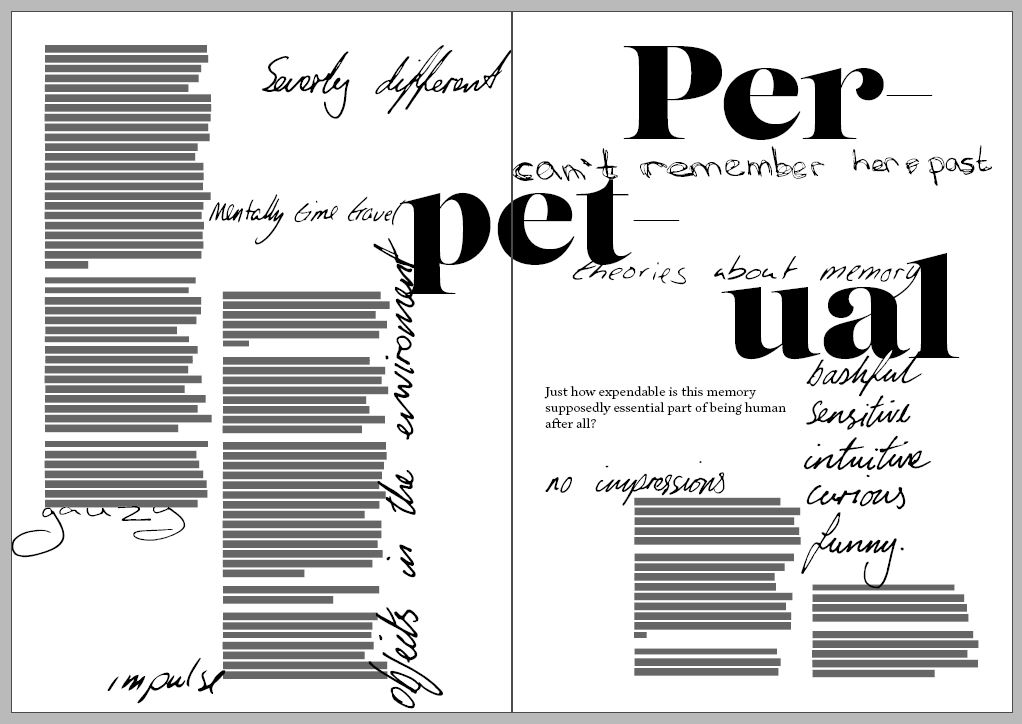 Severly different
Mentally time travel
objects in the enviroment
gauzy
impulse
Per-
can't remember her past
pet-
theories about memory
ual
Just how expendable is this memory
supposedly essential part of being human
after all?
bashful
Sensitive
intuitive
curious
funny.
no impressions